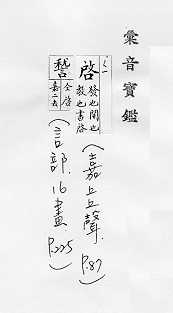 彙音寶鑑
啓
發也開也
教也書啓
(嘉上上聲. P.87)
仝啓
嘉二去
(言部. 16畫 P.225)